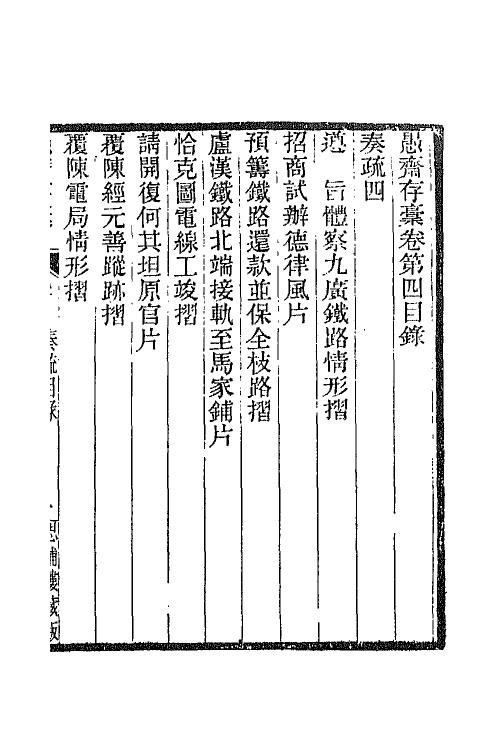 愚齋存稾卷第四目錄
奏疏四
遵　旨體察九廣鐵路情形摺
招商試辦德律風片
預籌鐵路還款並保全枝路摺
盧漢鐵路北端接軌至馬家鋪片
恰克圖電線工竣摺
請開復何其坦原官片
覆陳經元善蹤跡摺
覆陳電局情形摺
奏疏目錄
思補樓藏版